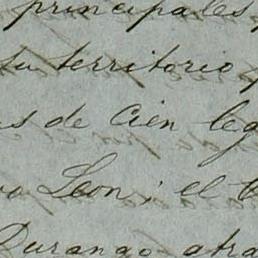 principales
su territorio
de Cien
Leon; el
Durango atra